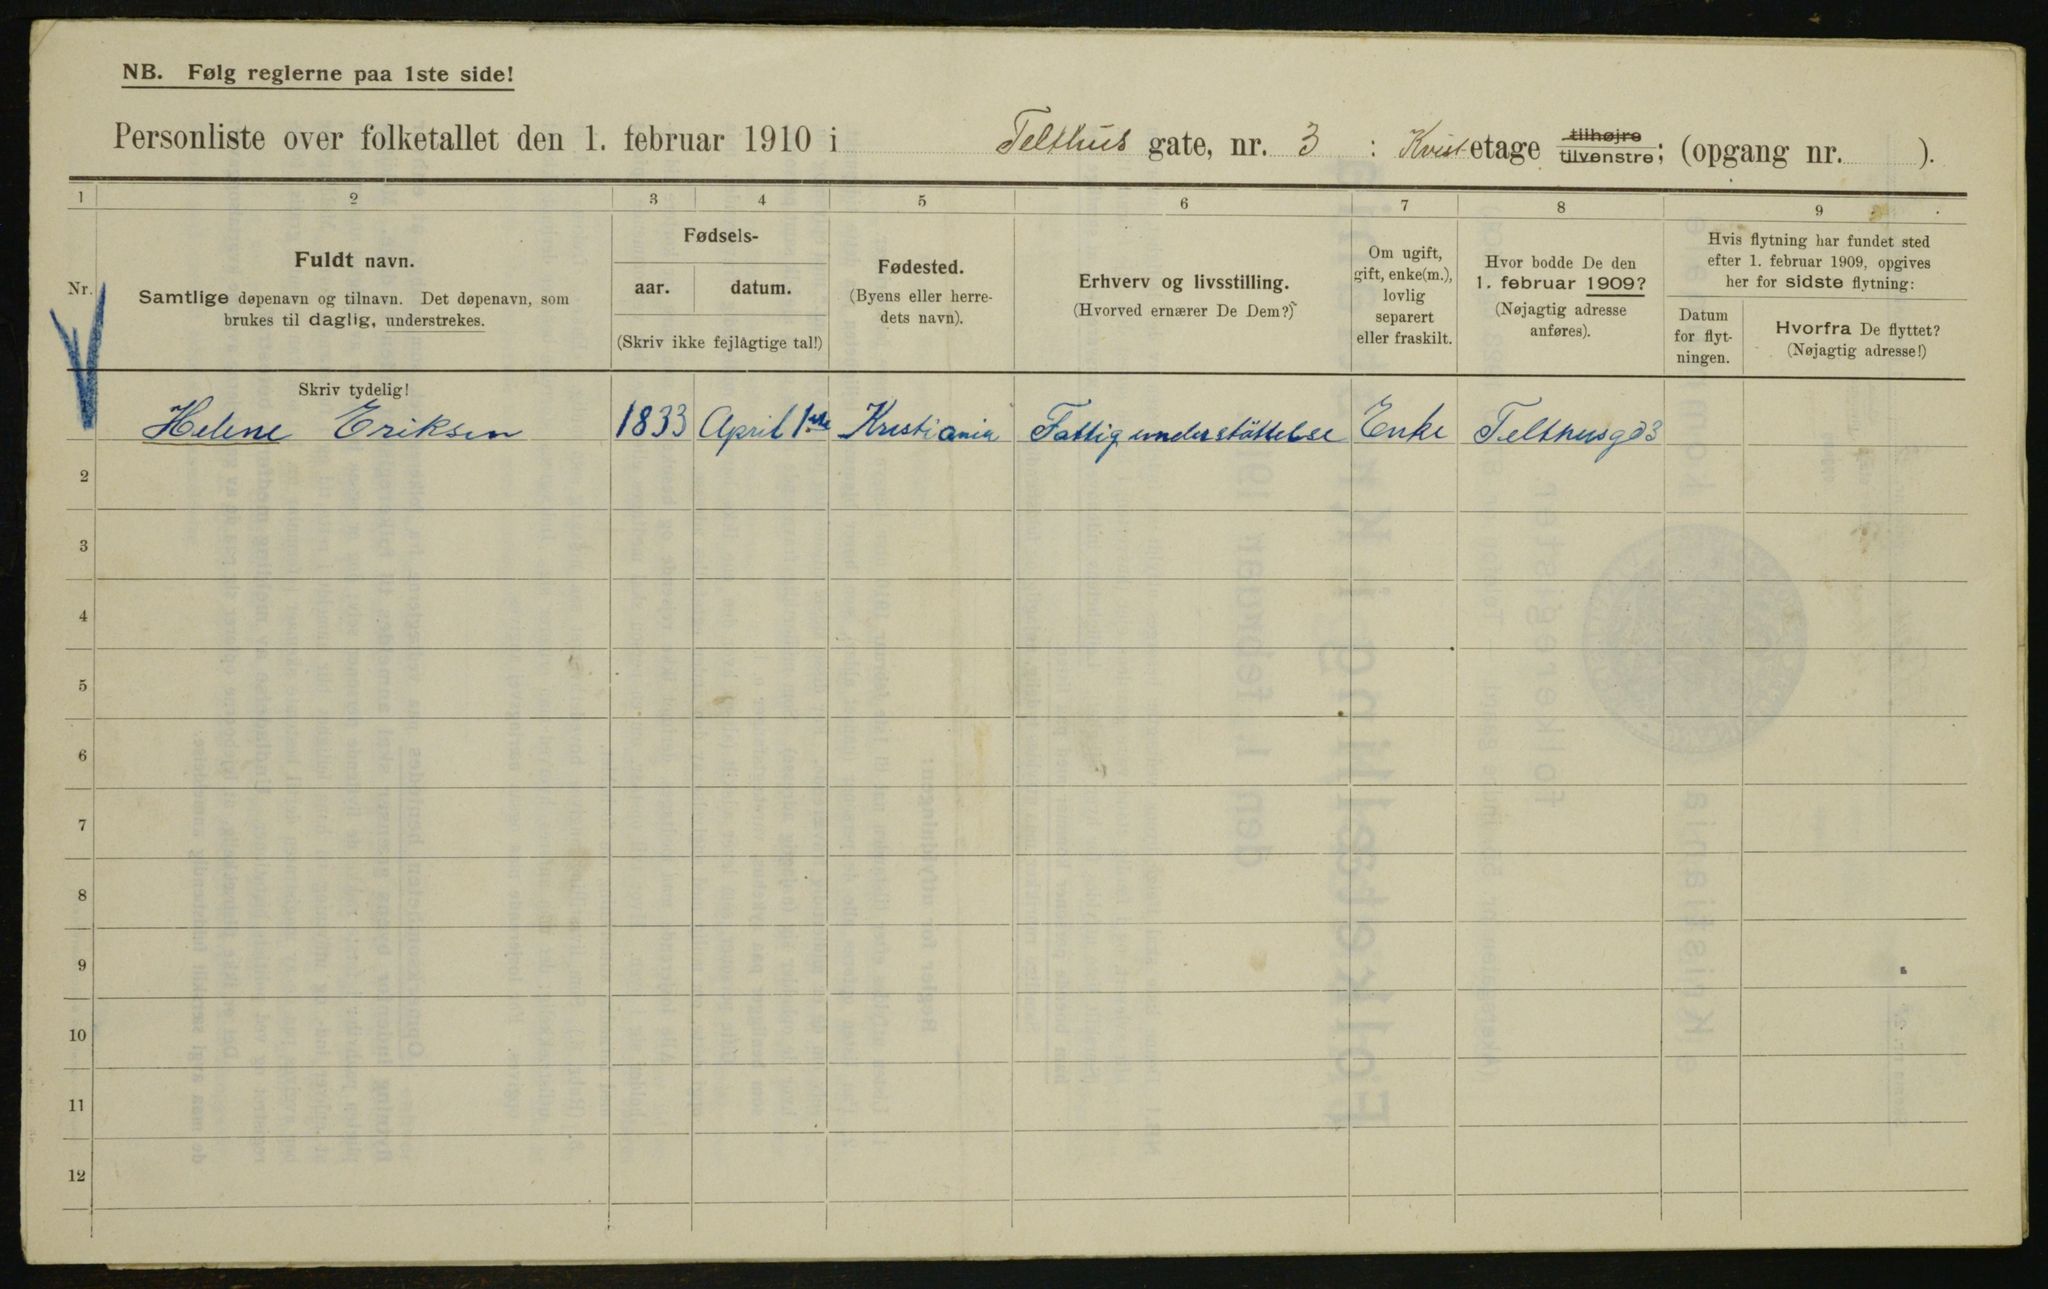 NB. Følg reglerne paa 1ste side!
Personliste over folketallet den 1. februar 1910 i Telthus gate, nr. 3 : Kvist etage tilhøjre tilvenstre; (opgang nr. ).
1 2 3 4 5 6 7 8 9
Nr.
Fuldt navn.
Samtlige døpenavn og tilnavn. Det døpenavn, som
brukes til daglig, understrekes.
Skriv tydelig!
Fødsels-
aar. datum.
(Skriv ikke fejlagtige tal!)
Fødested.
(Byens eller herre-
dets navn).
Erhverv og livsstilling.
(Hvorved ernærer De Dem?)
Om ugift,
gift, enke(m.),
lovlig
separert
eller fraskilt.
Hvor bodde De den
1. februar 1909?
(Nøjagtig adresse
anføres).
Hvis flytning har fundet sted
efter 1. februar 1909, opgives
her for sidste flytning:
Datum
for flyt-
ningen.
Hvorfra De flyttet?
(Nøjagtig adresse!)
Helene Eriksen 1833 April 1ste Kristiania Fattigunderstøttelse Enke Telthusgd 3
2
3
4
5
6
7
8
9
10
11
12